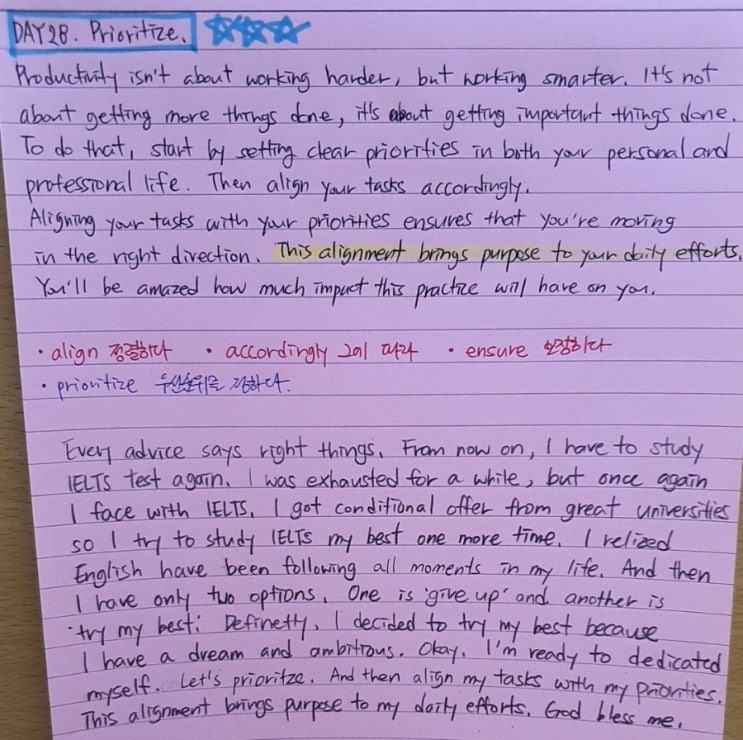 DAY28. Prioritize.
Productivity isn't about working harder, but working smarter. It's not
about getting more things done, it's about getting important things done.
To do that, start by setting clear priorities in both your personal and
professional life. Then align your tasks accordingly.
Aligning your tasks with your priorities ensures that you're moving
in the right direction. This alignment brings purpose to your daily efforts.
You'll be amazed how much impact this practice will have on you.
· align 정렬하다 · accordingly 그에 따라 · ensure 보장하다
· prioritize 우선순위를 정하다.
Every advice says right things. From now on, I have to study
IELTS test again. I was exhausted for a while, but once again
I face with IELTS. I got conditional offer from great universities
so I try to study IELTS my best one more time. I relized
English have been following all moments in my life. And then
I have only two options. One is 'give up' and another is
'try my best.' Definetly, I decided to try my best because
I have a dream and ambitious. Okay. I'm ready to dedicated
myself. Let's prioritze. And then align my tasks with my priorities.
This alignment brings purpose to my daily efforts. God bless me.